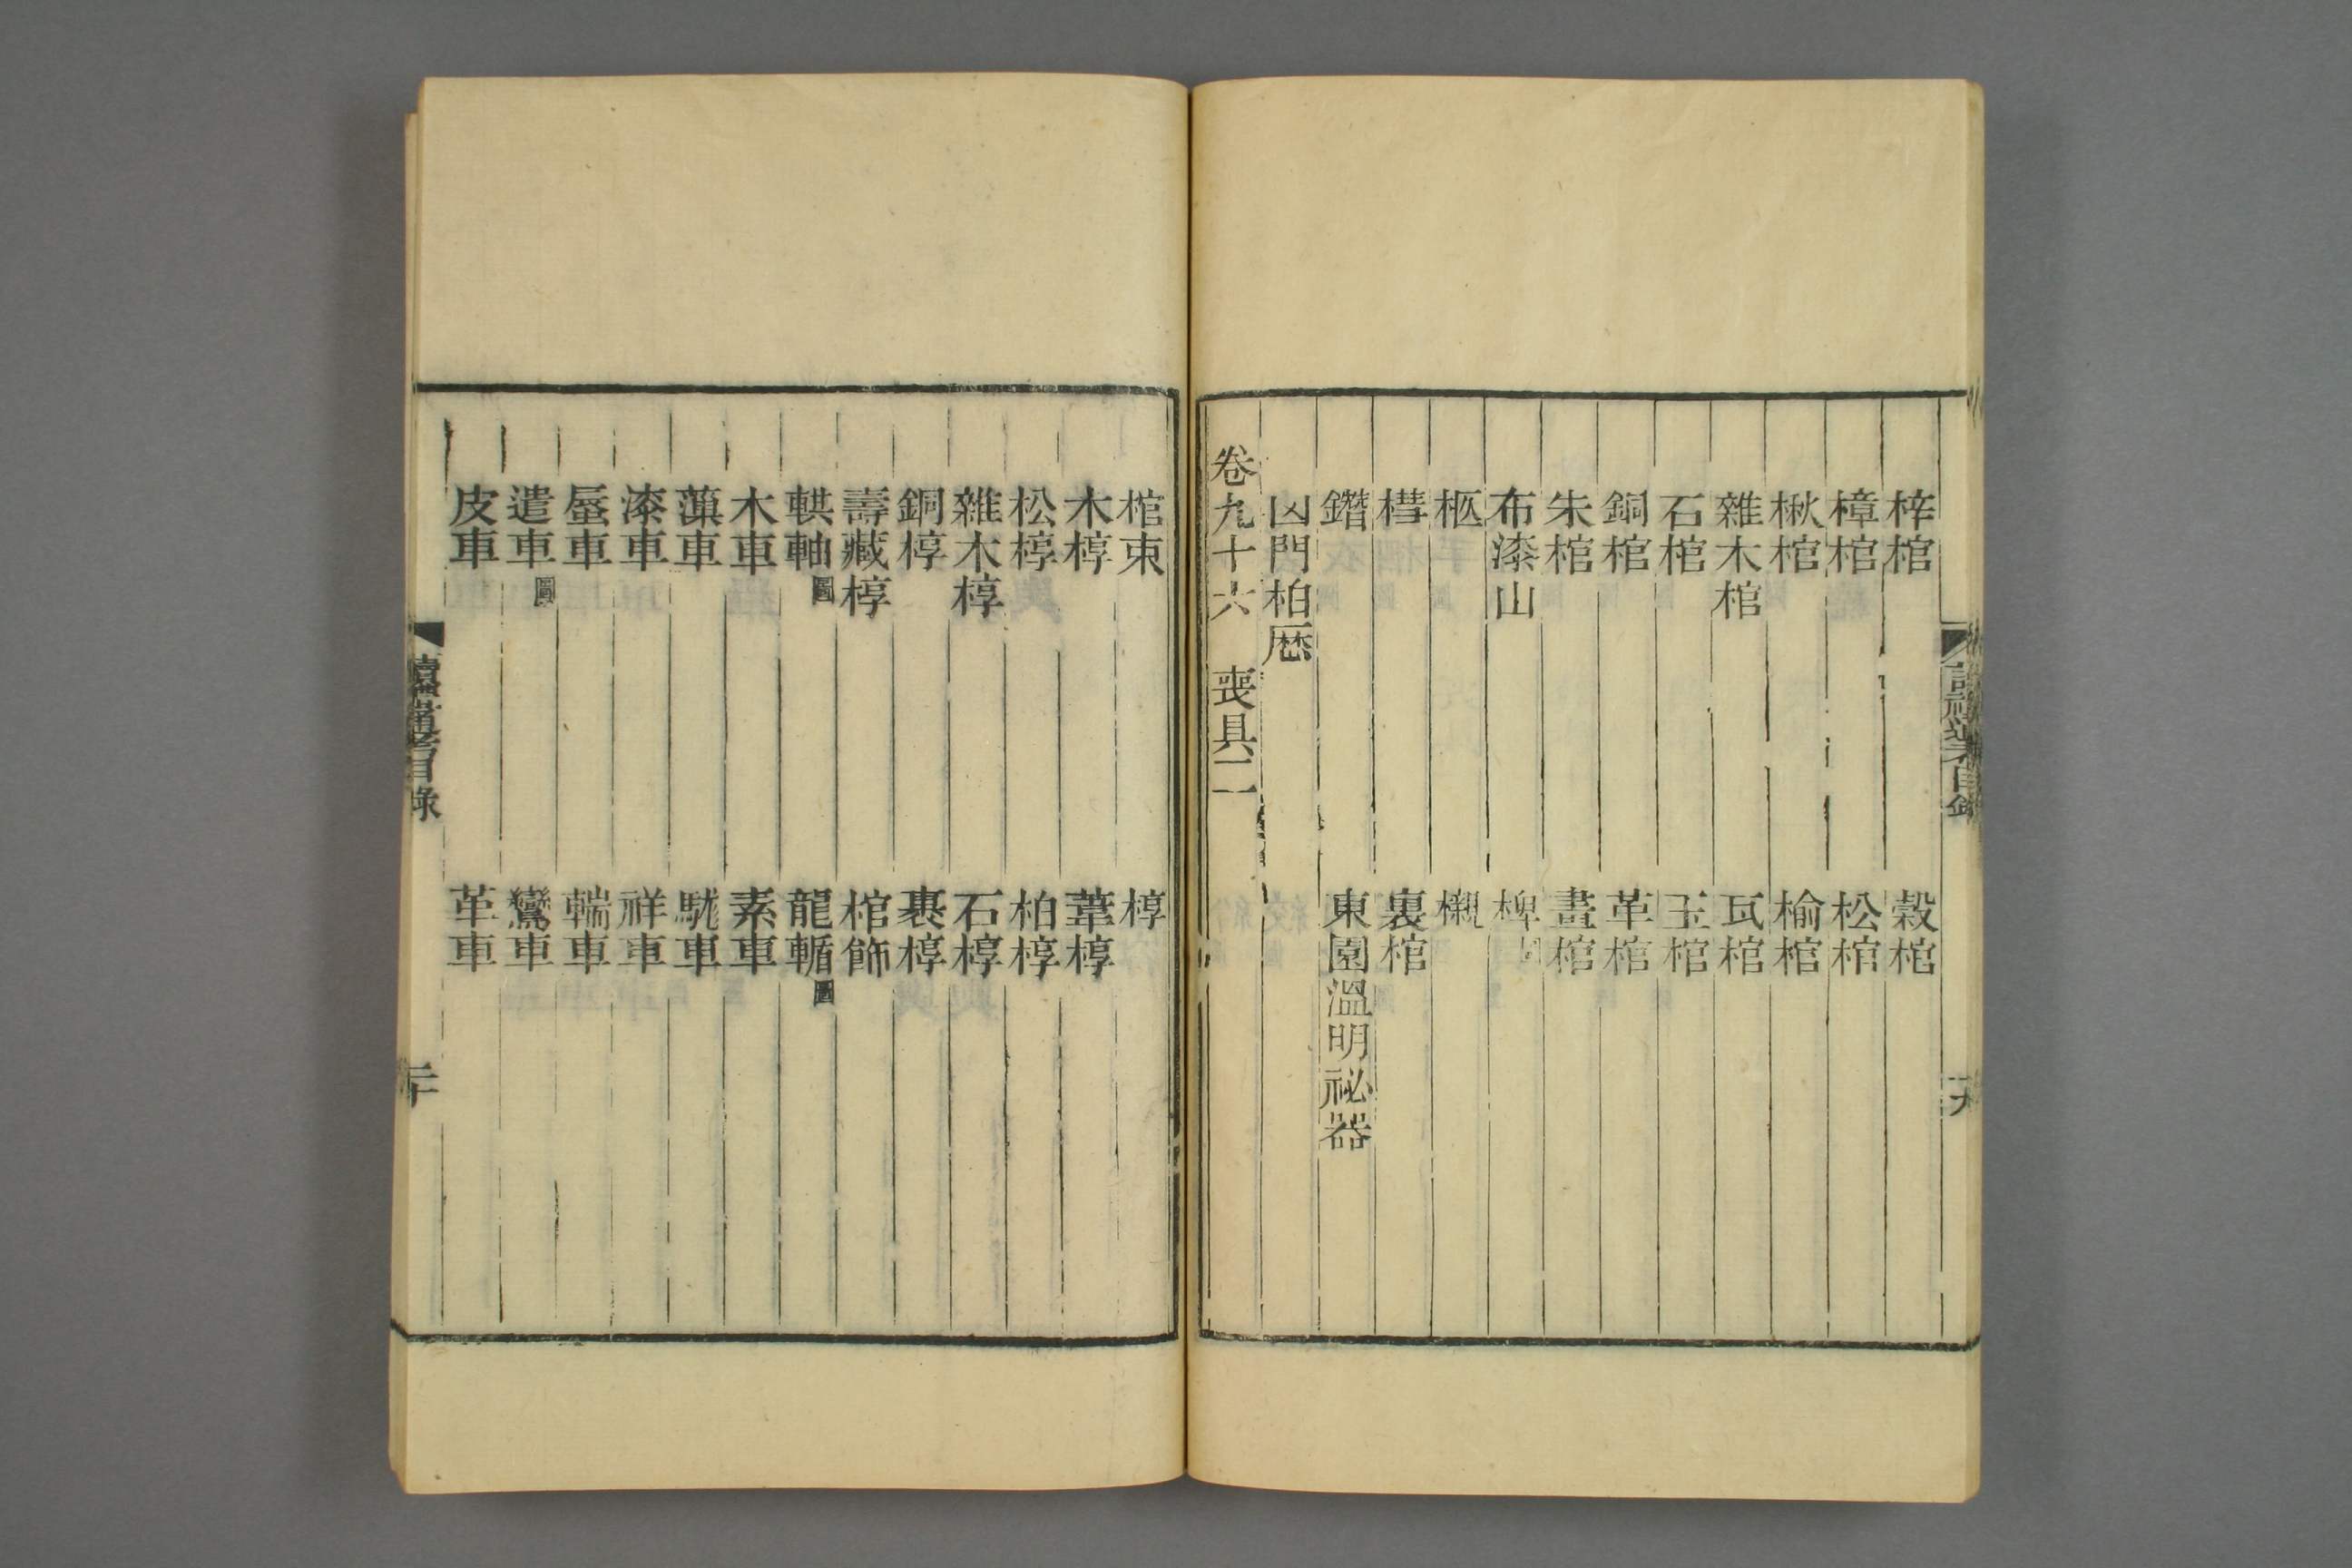 梓棺 穀棺
樟棺 松棺
楸棺 榆棺
雜木棺 瓦棺
石棺 玉棺
銅棺 革棺
朱棺 畫棺
布漆山 椑
柩 櫬
槥 裏棺
鐕 東園溫明祕器
凶門柏歷
卷九十六 喪具二
棺束 椁
木椁 葦椁
松椁 柏椁
雜木椁 石椁
銅椁 裹椁
壽藏椁 棺飾
輁軸圖 龍輴圖
木車 素車
薻車 駹車
漆車 祥車
蜃車 輲車
遣車圖 鸞車
皮車 革車
目錄
二十